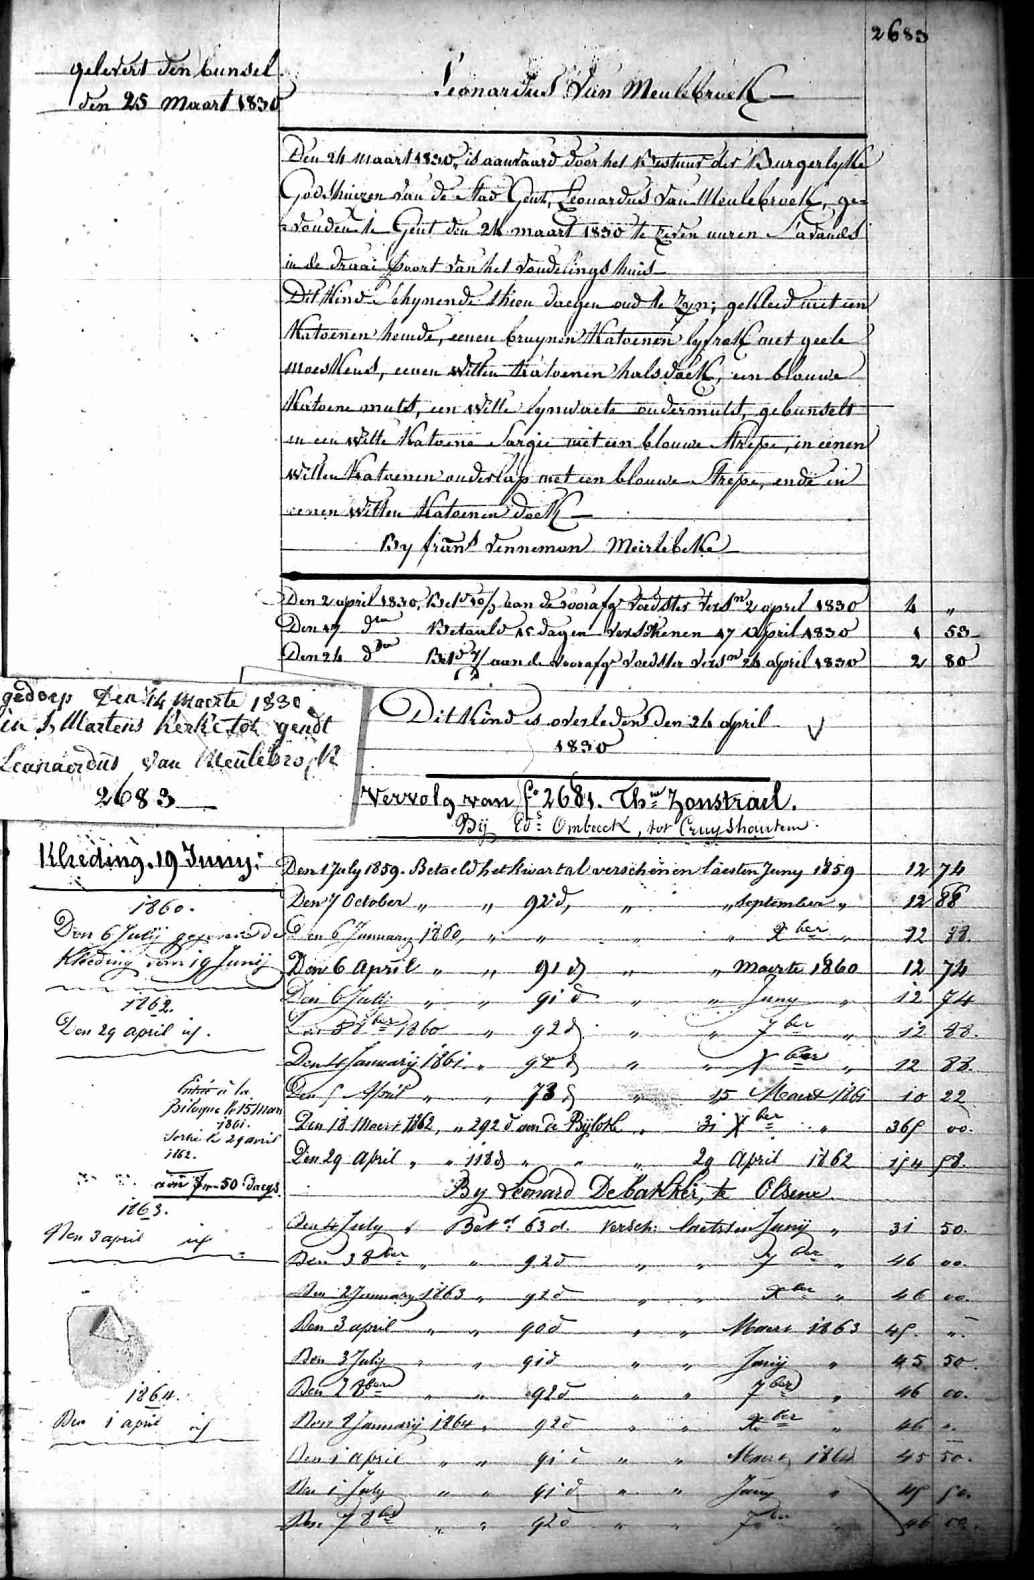 2683
gelevert den bunsel
den 25 maart 1830
Leonardus Van Meulebroek
Den 24 maart 1830, is aanvaard door het Bestuur der Burgerlyke
Godshuizen van de Stad Gent, Leonardus Van Meulebroek, ge-
vonden te Gent den 24 maart 1830 te zeven uuren s'avonds
in de draai poort van het vondelings huis
Dit Kind schynende thien daegen oud te zyn; gekleed met een
Katoenen hemde, eenen bruynen Katoenen lyfrok met geele
moeskens, eenen witten Katoenen halsdoek, een blauwe
Katoene muts, een witte lynwaete ondermuts, gebunselt
in een witte Katoene Sargie met een blauwe Strepe, in eenen
witten Katoenen onderlap met een blauwe Strepe, ende in
eenen witten Katoenen doek
By frans Venneman Meirlebeke
Den 2 april 1830, Bet. aan de voorafg. voedster vers.n 2 april 1830 4 „
Den 17 do Betaald 15 dagen Verschenen 17 April 1830 1 53
Den 24 do Bet. aan de voorafg. voedster vers.n 24 april 1830 2 80
gedoep Den 14 maerte 1830
in S. Martens Kerke tot gendt
Leanaerdus Van Meulebroek
2683
Dit Kind is overleden den 24 april
1830
Vervolg van fo 2681. Zonstrael.
Bij Ombreck, tot Cruyshautem.
Kleeding. 19 Juny:
1860.
Den 6 Julij
Kleeding van 19 Junij
1862.
Den 29 april id.
Entré à la
Biloque le 15 Mars
1861.
Sortie le 29 avril
1862.
50 dags
1863.
Den 3 april id
1864.
Den 1 april id
Den 1 July 1859. Betaeld het kwartal verschenen laesten Juny 1859 12 74
Den 7 October „ „ 92 d, „ „ September „ 12 88
Den 6 January 1860, „ „ „ „ Xber „ 12 88.
Den 6 April „ „ 91 d „ „ Maerte 1860 12 74
Den 6 July „ „ 91 d „ „ Juny „ 12 74
8ber 1860 „ 92 d „ „ 7ber „ 12 88.
Den 4 January 1861 „ 92 d „ „ Xber „ 12 88.
Den 5 April „ 73 d „ „ 15 Maert 1861 10 22
Den 18 Maert 1862, „ 292 d aan de Byloke „ 31 Xber „ 365 00.
Den 29 April „ „ 118 d „ „ „ 29 April 1862 154 58.
By Leonard Debakker, te Olsene
Den 4 July „ Bet. 63 d. versch: laetsten Junij „ 31 50.
Den 3 8ber „ „ 92 d „ „ 7ber „ 46 00.
Den 2 January 1863 „ 92 d „ „ Xber „ 46 00.
Den 3 april „ „ 90 d „ „ Maert 1863 45. „.
Den 3 July „ „ 91 d „ „ Junij „ 45 50.
Den 2 8ber „ „ 92 d „ „ 7ber „ 46 00.
Den 2 Januarij 1864 „ 92 d „ „ Xber „ 46 „.
Den 1 april „ „ 91 d „ „ Maert 1864 45 50.
Den 1 July „ „ 91 d „ „ Juny „ 45 50.
Den 7 8ber „ „ 92 d „ „ 7ber „ 46 00.